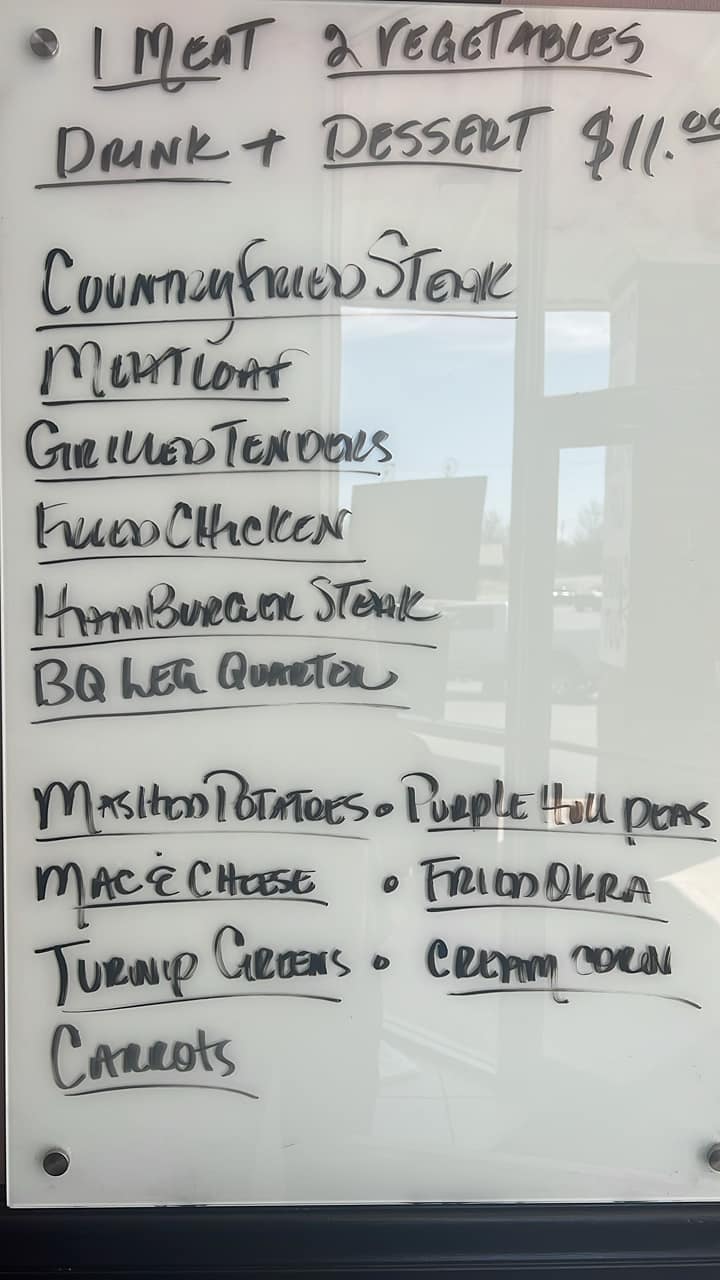 1 MEAT 2 VEGETABLES
DRINK + DESSERT $11.00
COUNTRY FRIED STEAK
MEATLOAF
GRILLED TENDERS
FRIED CHICKEN
HAMBURGER STEAK
BQ LEG QUARTER
MASHED POTATOES • PURPLE HULL PEAS
MAC & CHEESE • FRIED OKRA
TURNIP GREENS • CREAM CORN
CARROTS